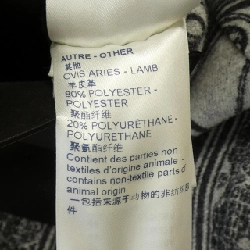 AUTRE - OTHER
其他
OVIS ARIES - LAMB
羊皮革
80% POLYESTER -
POLYESTER
聚酯纤维
20% POLYURETHANE -
POLYURETHANE
聚氨酯纤维
Contient des parties non
textiles d'origine animale -
contains non-textile parts of
animal origin
一包括来源于动物的非动纺
维